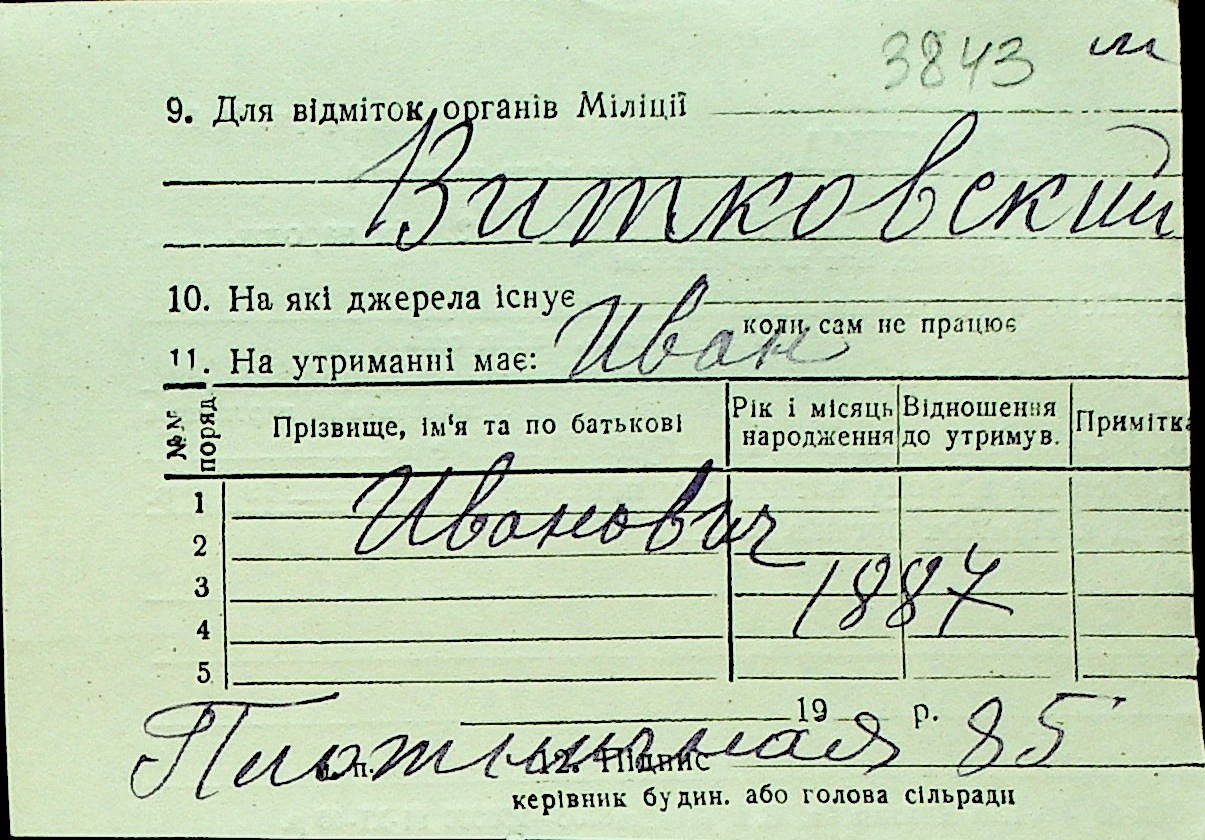 3843 м
9. Для відміток органів Міліції
Витковский
10. На які джерела існує
коли сам не працює
11. На утриманні має: Иван
№№ поряд. Прізвище, ім'я та по батькові Рік і місяць народження Відношення до утримув. Примітка
1
Иванович
2
3
1887
4
5
19 р.
Плотничная 85
м. п. 12. Підпис
керівник будин. або голова сільради